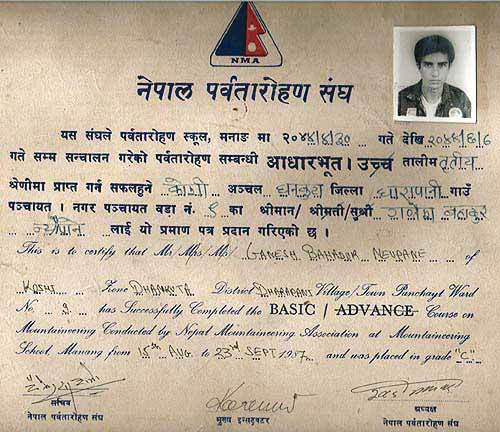 NMA
नेपाल पर्वतारोहण संघ
यस संघले पर्वतारोहण स्कूल, मनाङ मा २०४४/४/३० गते देखि २०४४/६/६
गते सम्म सञ्चालन गरेको पर्वतारोहण सम्बन्धी आधारभूत । उच्च तालीम तृतीय
श्रेणीमा प्राप्त गर्न सफलहुने कोशी अञ्चल धनकुटा जिल्ला धारापानी गाउँ
पञ्चायत । नगर पञ्चायत वडा नं ९ का श्रीमान/श्रीमती/सुश्री गणेश बहादुर
न्यौपाने लाई यो प्रमाण पत्र प्रदान गरिएको छ ।
This is to certify that Mr/Mrs/Ms/ GANESH BAHADUR NEUPANE of
KOSHI Zone DHANKUTA District DHARAPANI Village/Town Panchayt Ward
No. 9 has Successfully Completed the BASIC / ADVANCE Course on
Mountaineering Conducted by Nepal Mountaineering Association at Mountaineering
School Manang from 15th AUG to 23rd SEPT 1987 and was placed in grade "C"
सचिव
नेपाल पर्वतारोहण संघ
मुख्य इन्स्ट्रक्टर
अध्यक्ष
नेपाल पर्वतारोहण संघ